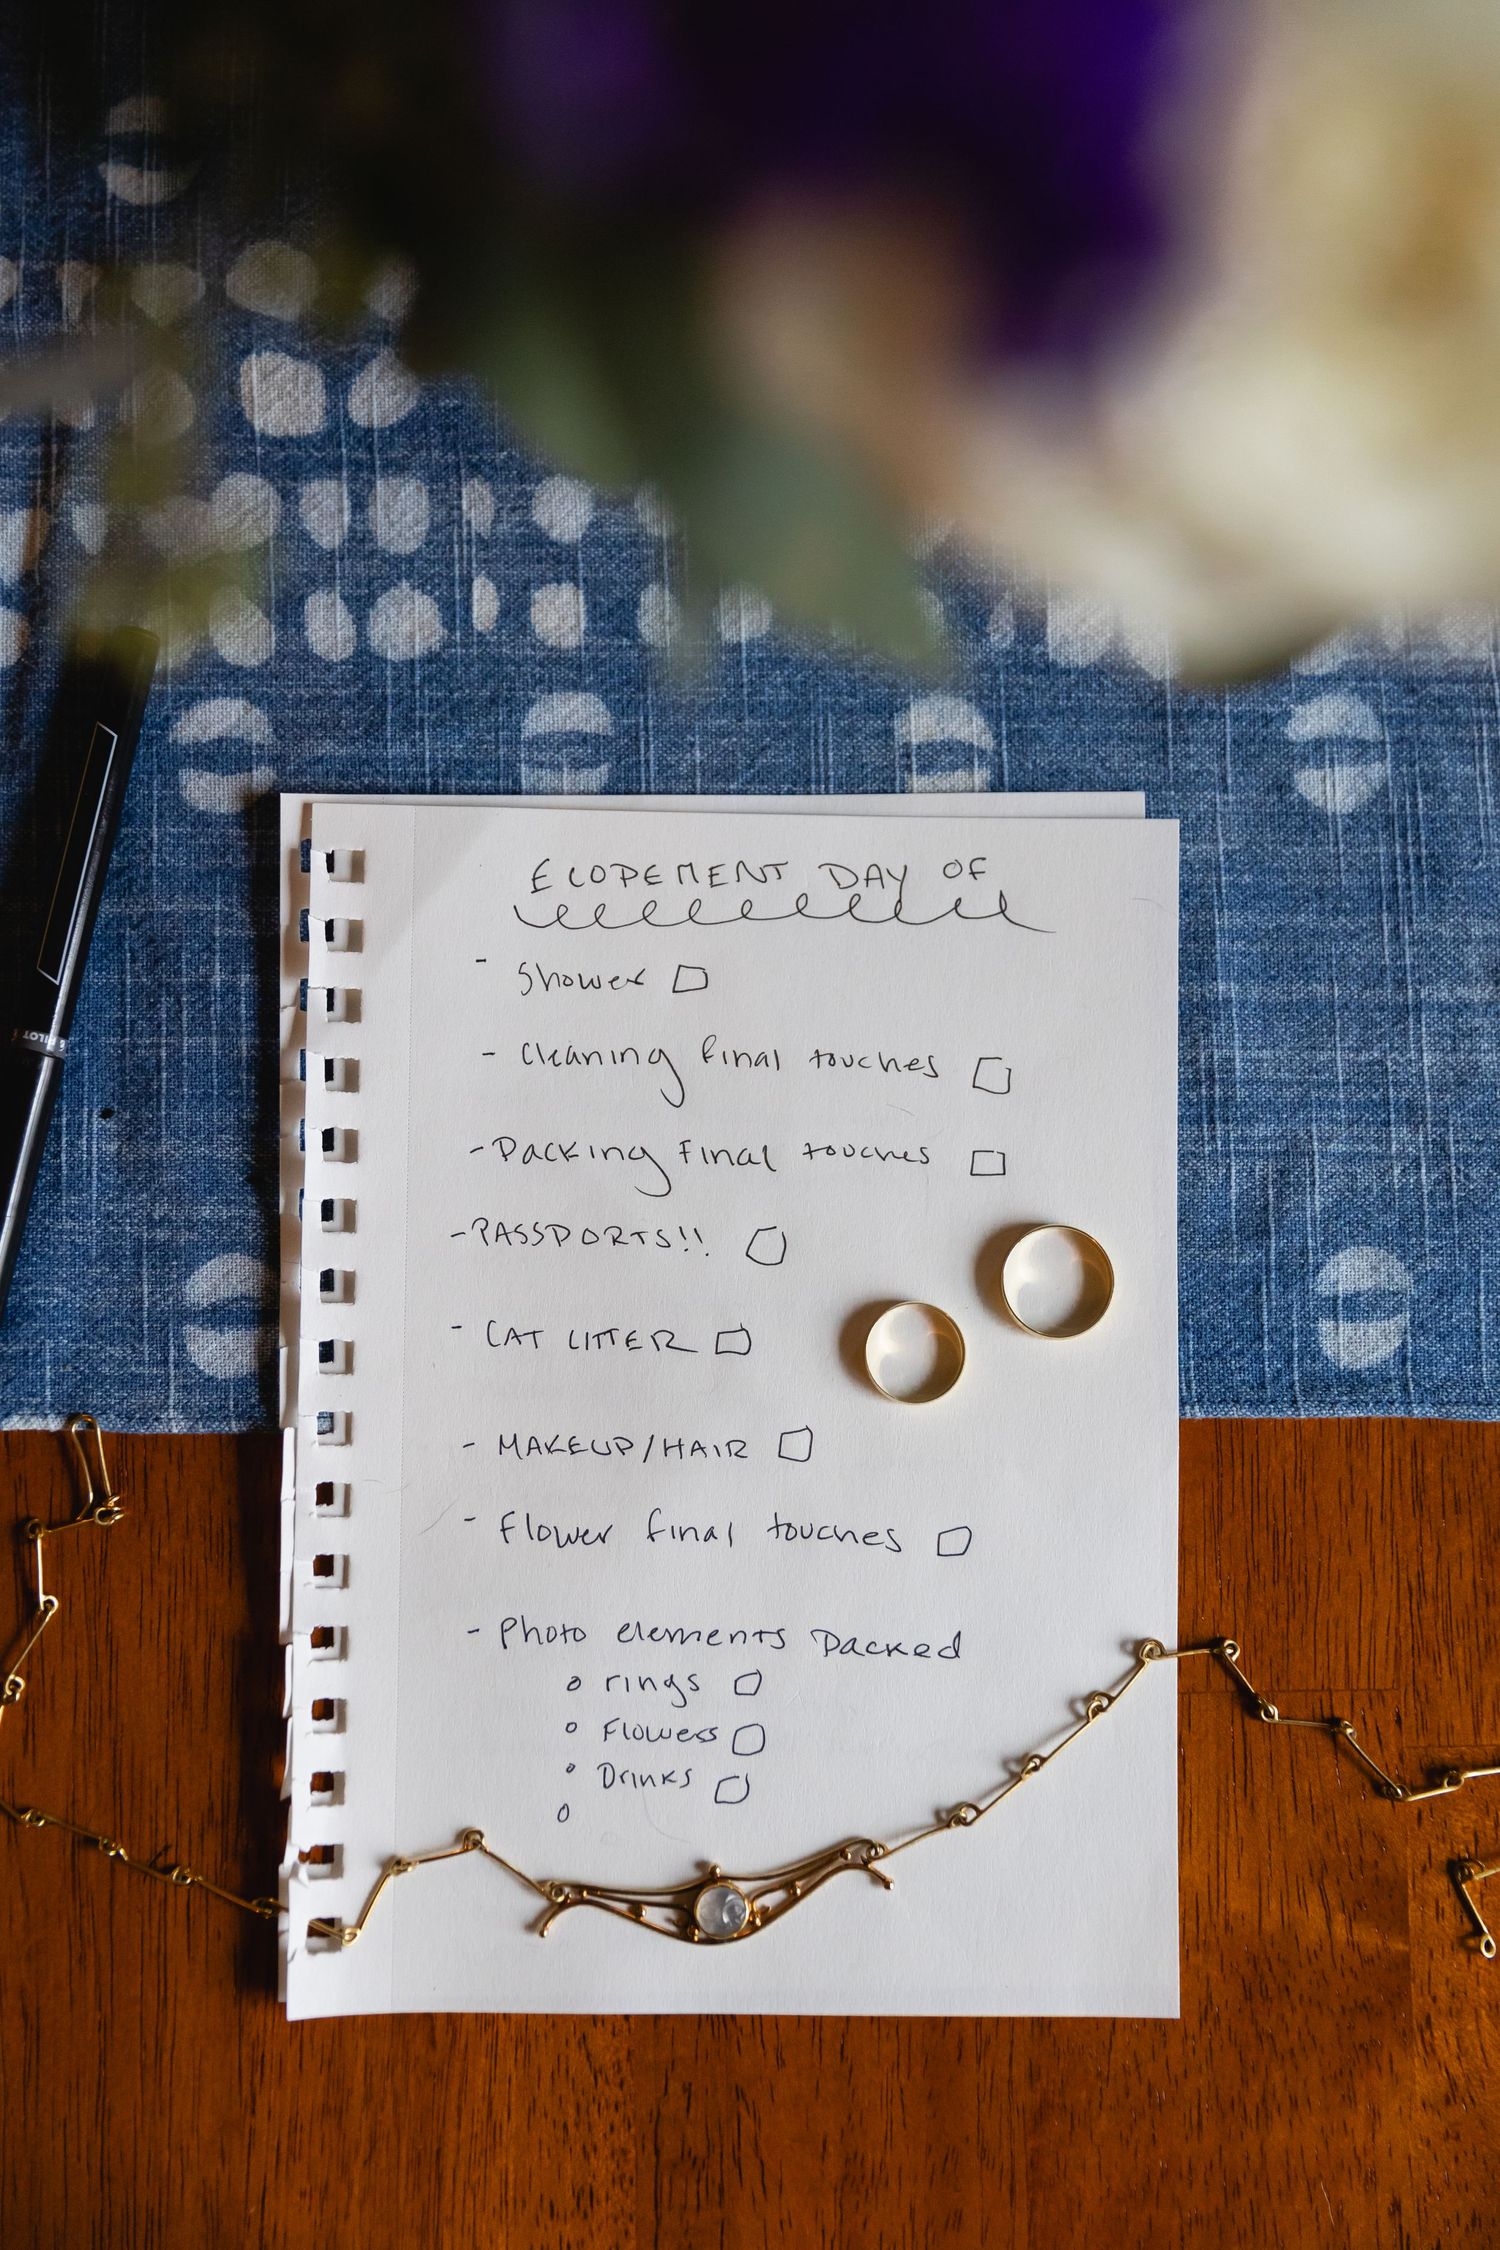 ELOPEMENT DAY OF
- Shower □
- Cleaning final touches □
- Packing Final touches □
- PASSPORTS!! □
- CAT LITTER □
- MAKEUP/HAIR □
- Flower final touches □
- Photo elements Packed
○ rings □
○ Flowers □
○ Drinks □
○
PILOT